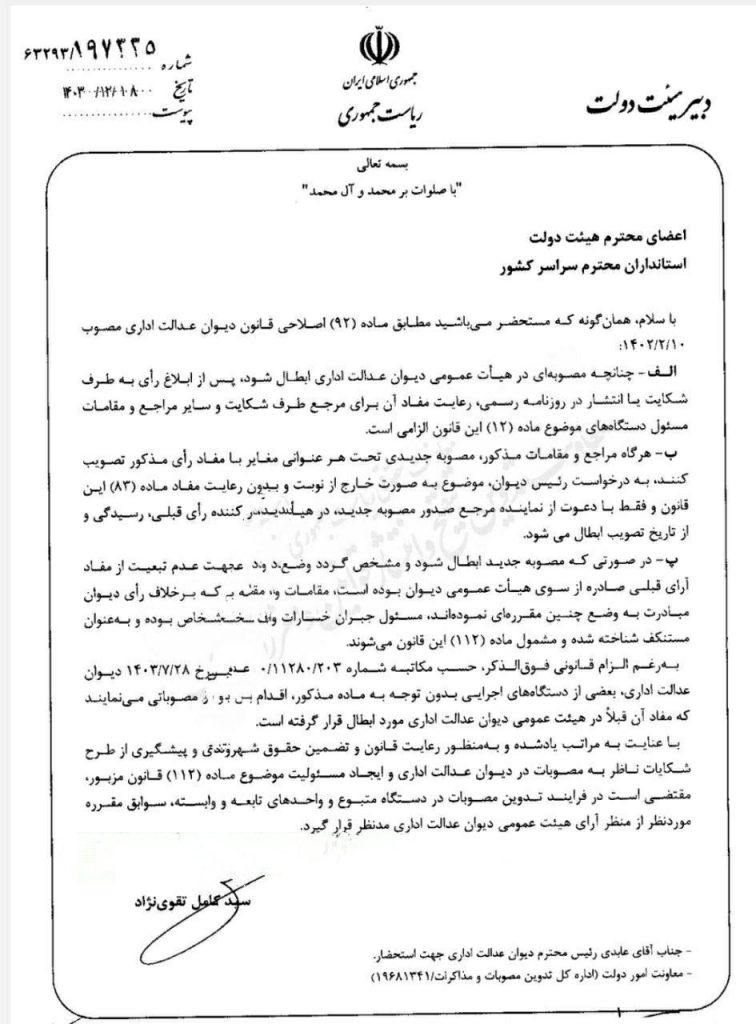 دبیر هیئت دولت
جمهوری اسلامی ایران
ریاست جمهوری
شماره ۶۳۲۹۳/۱۹۷۳۳۵
تاریخ ۱۴۰۳/۱۲/۰۸
پیوست
بسمه تعالی
"با صلوات بر محمد و آل محمد"
اعضای محترم هیئت دولت
استانداران محترم سراسر کشور
با سلام، همان‌گونه که مستحضر می‌باشید مطابق ماده (۹۲) اصلاحی قانون دیوان عدالت اداری مصوب
۱۴۰۲/۲/۱۰:
الف- چنانچه مصوبه‌ای در هیأت عمومی دیوان عدالت اداری ابطال شود، پس از ابلاغ رأی به طرف
شکایت یا انتشار در روزنامه رسمی، رعایت مفاد آن برای مرجع طرف شکایت و سایر مراجع و مقامات
مسئول دستگاه‌های موضوع ماده (۱۲) این قانون الزامی است.
ب- هرگاه مراجع و مقامات مذکور، مصوبه جدیدی تحت هر عنوانی مغایر با مفاد رأی مذکور تصویب
کنند، به درخواست رئیس دیوان، موضوع به صورت خارج از نوبت و بدون رعایت مفاد ماده (۸۳) این
قانون و فقط با دعوت از نماینده مرجع صدور مصوبه جدید، در کننده رأی قبلی، رسیدگی و
از تاریخ تصویب ابطال می شود.
پ- در صورتی که مصوبه جدید ابطال شود و مشخص گردد عدم تبعیت از مفاد
آرای قبلی صادره از سوی هیأت عمومی دیوان بوده است، مقامات که برخلاف رأی دیوان
مبادرت به وضع چنین مقرره‌ای نموده‌اند، مسئول جبران خسارات بوده و به‌عنوان
مستنکف شناخته شده و مشمول ماده (۱۱۲) این قانون می‌شوند.
به‌رغم الزام قانونی فوق‌الذکر، حسب مکاتبه شماره ۰/۱۱۲۸۰/۲۰۳ ۱۴۰۳/۷/۲۸ دیوان
عدالت اداری، بعضی از دستگاه‌های اجرایی بدون توجه به ماده مذکور، اقدام مصوباتی می‌نمایند
که مفاد آن قبلاً در هیئت عمومی دیوان عدالت اداری مورد ابطال قرار گرفته است.
با عنایت به مراتب یادشده و به‌منظور رعایت قانون و تضمین حقوق شهروندی و پیشگیری از طرح
شکایات ناظر به مصوبات در دیوان عدالت اداری و ایجاد مسئولیت موضوع ماده (۱۱۲) قانون مزبور،
مقتضی است در فرایند تدوین مصوبات در دستگاه متبوع و واحدهای تابعه و وابسته، سوابق مقرره
موردنظر از منظر آرای هیئت عمومی دیوان عدالت اداری مدنظر قرار گیرد.
سید کامل تقوی‌نژاد
- جناب آقای عابدی رئیس محترم دیوان عدالت اداری جهت استحضار.
- معاونت امور دولت (اداره کل تدوین مصوبات و مذاکرات/۱۹۶۸۱۳۴۱)